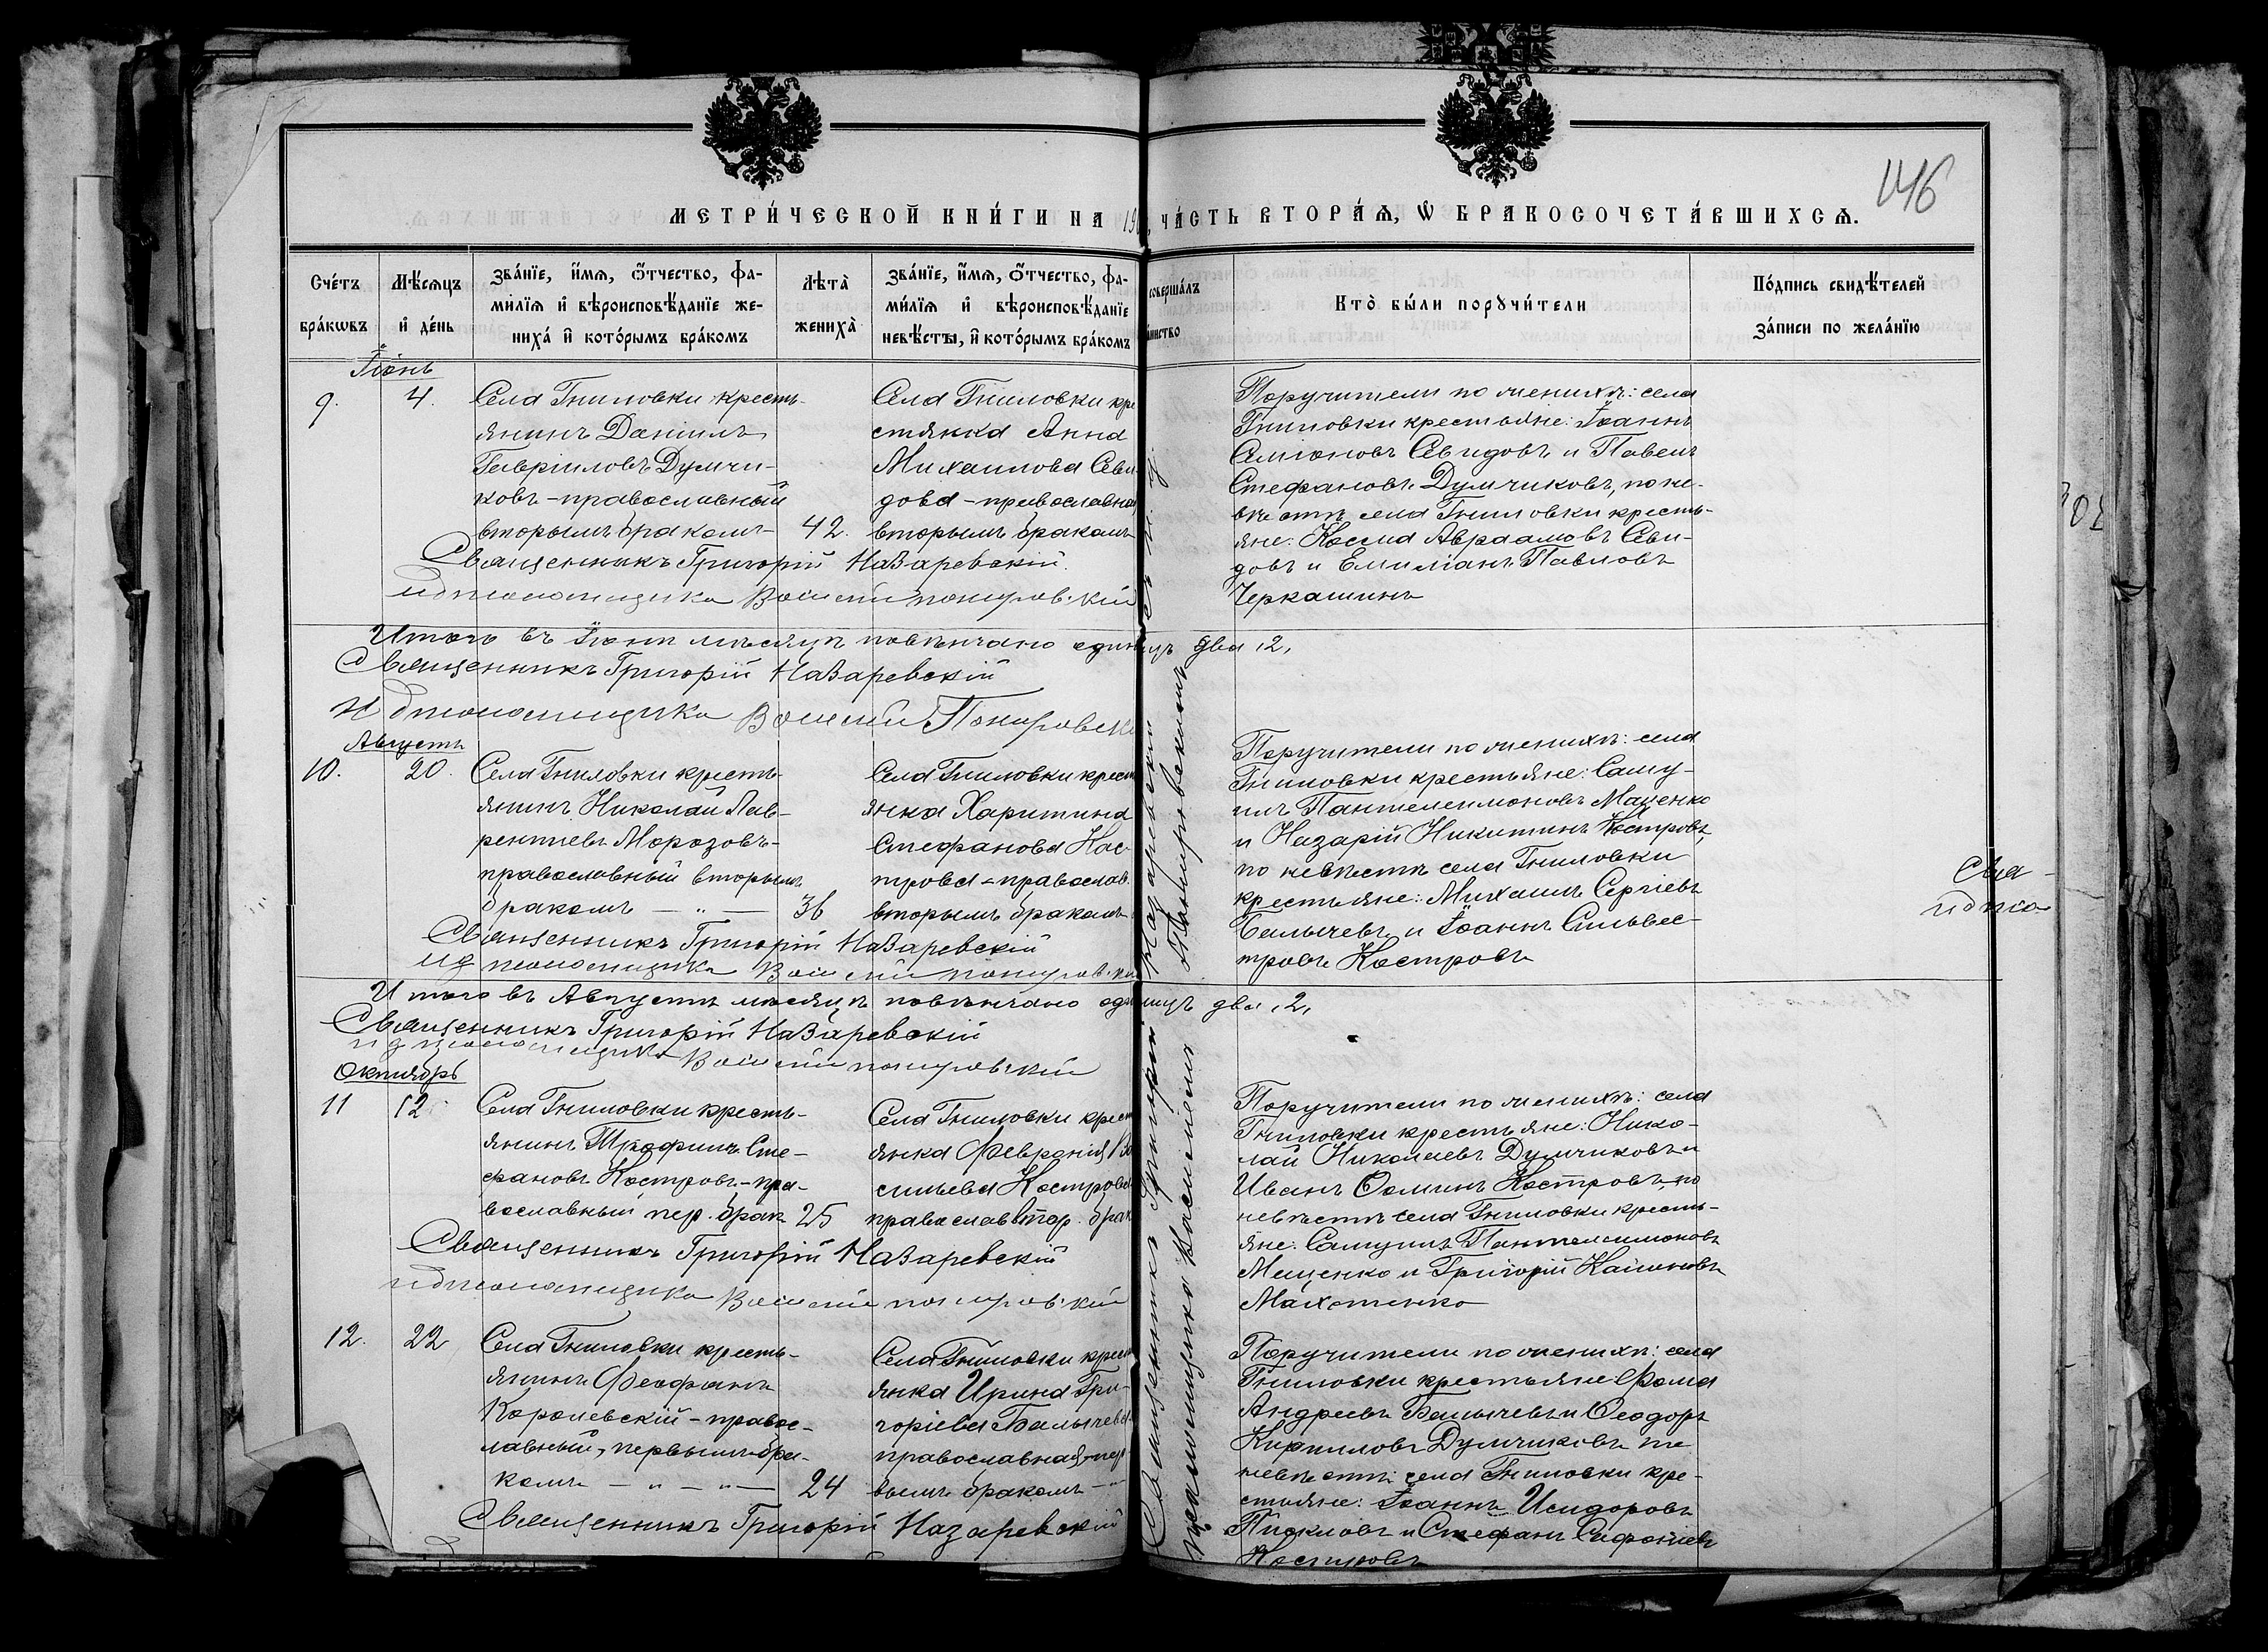 146
МЕТРИ́ЧЕСКОЙ КНИ́ГИ НА 19
, ЧА́СТЬ ВТОРА́Ѧ, Ѡ БРАКОСОЧЕТА́ВШИХСѦ.
Сче́тъ бра́кѡвъ
Мѣ́сѧцъ и҆ де́нь
Зва́нїе, и҆́мѧ, ѻ҆́тчество, фа-
ми́лїѧ и҆ вѣроисповѣ́данїе же-
ниха́ и҆ кото́рымъ бра́комъ
Лѣта̀ жениха̀
Зва́нїе, и҆́мѧ, ѻ҆́тчество, фа-
ми́лїѧ и҆ вѣроисповѣ́данїе
невѣ́сты, и҆ кото́рымъ бра́комъ
соверша́лъ
инство
Кто̀ бы́ли порꙋчи́тели
По́дпись свидѣ́телей
за́писи по жела́нїю
Іюнь
9.
4.
Села Гниловки кресть-
янинъ Даніилъ
Гавріиловъ Думчи-
ковъ - православный
вторымъ бракомъ
42.
Села Гниловки кре
стянка Анна
Михаилова Севи
дова - православная
вторымъ бракомъ
Поручители по женихѣ: села
Гниловки крестьяне: Іоаннъ
Симоновъ Севидовъ и Павелъ
Стефановъ Думчиковъ, по не-
вѣстѣ села Гниловки кресть-
яне: Косма Авраамовъ Севи-
довъ и Емиліанъ Павловъ
Черкашинъ
Священникъ Григорій Назаревскій.
И д псаломщика Василій
Итого въ Іюнѣ мѣсяцѣ повѣнчано единицъ два ,2,
Священникъ Григорій Назаревскій
И д псаломщика Василій
Августъ
10.
20.
Села Гниловки кресть-
янинъ Николай Лав-
рентіевъ Морозовъ-
православный вторымъ
бракомъ — " —
36
Села Гниловки кресть
янка Харитина
Стефанова Кос-
трова - православ.
вторымъ бракомъ
Поручители по женихѣ: села
Гниловки крестьяне: Саму-
илъ Пантелеимоновъ Маценко
и Назарій Никитинъ Костровъ,
по невѣстѣ села Гниловки
крестьяне: Михаилъ Сергіевъ
Балычевъ и Іоаннъ Сильвес-
тровъ Костровъ
Свя
и д пса
Священникъ Григорій Назаревскій
И д псаломщика Василій
Итого въ Августѣ мѣсяцѣ повѣнчано единицъ два ,2,
Священникъ Григорій Назаревскій
И д псаломщика Василій
Октябрь
11
12
Села Гниловки кресть-
янинъ Трофимъ Сте-
фановъ Костровъ - пра-
вославный пер. брак
25
Села Гниловки крест
янка Февронія Ва
сильева Кострова
православ втор. брак
Поручители по женихѣ: села
Гниловки крестьяне: Нико-
лай Николаевъ Думчиковъ и
Иванъ Ѳоминъ Костровъ, по
невѣстѣ села Гниловки кресть-
яне: Самуилъ Пантелеимоновъ
Маценко и Григорій
Священникъ Григорій Назаревскій
И д псаломщика Василій
12.
22
Села Гниловки кресть-
янинъ Феофанъ
Королевскій - правос-
лавный, первымъ бра-
комъ — " — " —
24
Села Гниловки крест
янка Ирина Гри-
горіева Балычева
православная пер
вымъ бракомъ - "
Поручители по женихѣ: села
Гниловки крестьяне Фома
Андреевъ Балычевъ и Ѳеодоръ
Кирилловъ Думчиковъ по
невѣстѣ: села Гниловки кре-
стьяне: Іоаннъ Исидоровъ
и Стефанъ
Костровъ
Священникъ Григорій Назаревскій
Священникъ Григорій Назаревскій
псаломщика Василіемъ